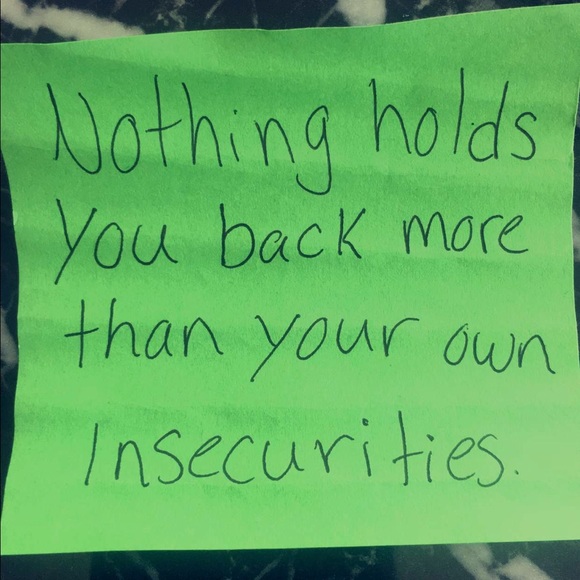 Nothing holds
you back more
than your own
Insecurities.